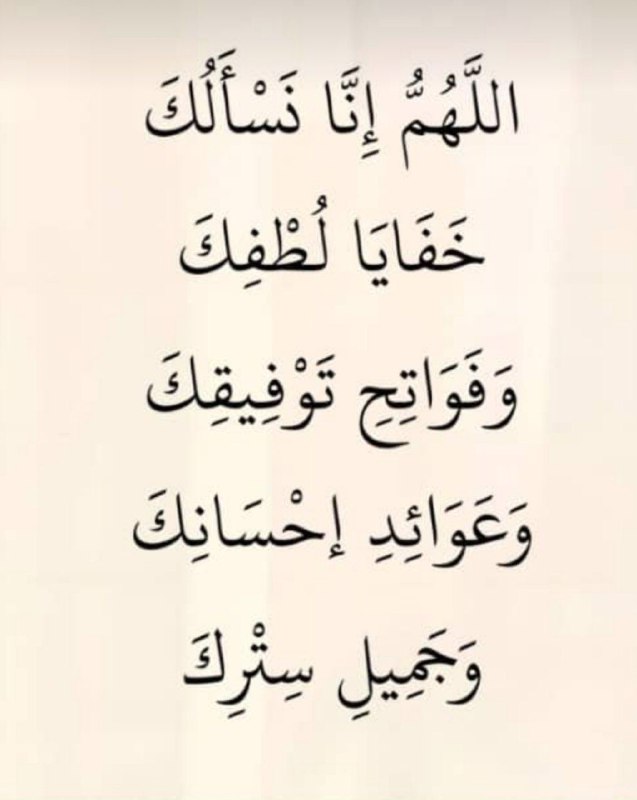 اللَّهُمُّ إِنَّا نَسْأَلُكَ
خَفَايَا لُطْفِكَ
وَفَوَاتِحِ تَوْفِيقِكَ
وَعَوَائِدِ إحْسَانِكَ
وَجَمِيلِ سِتْرِكَ